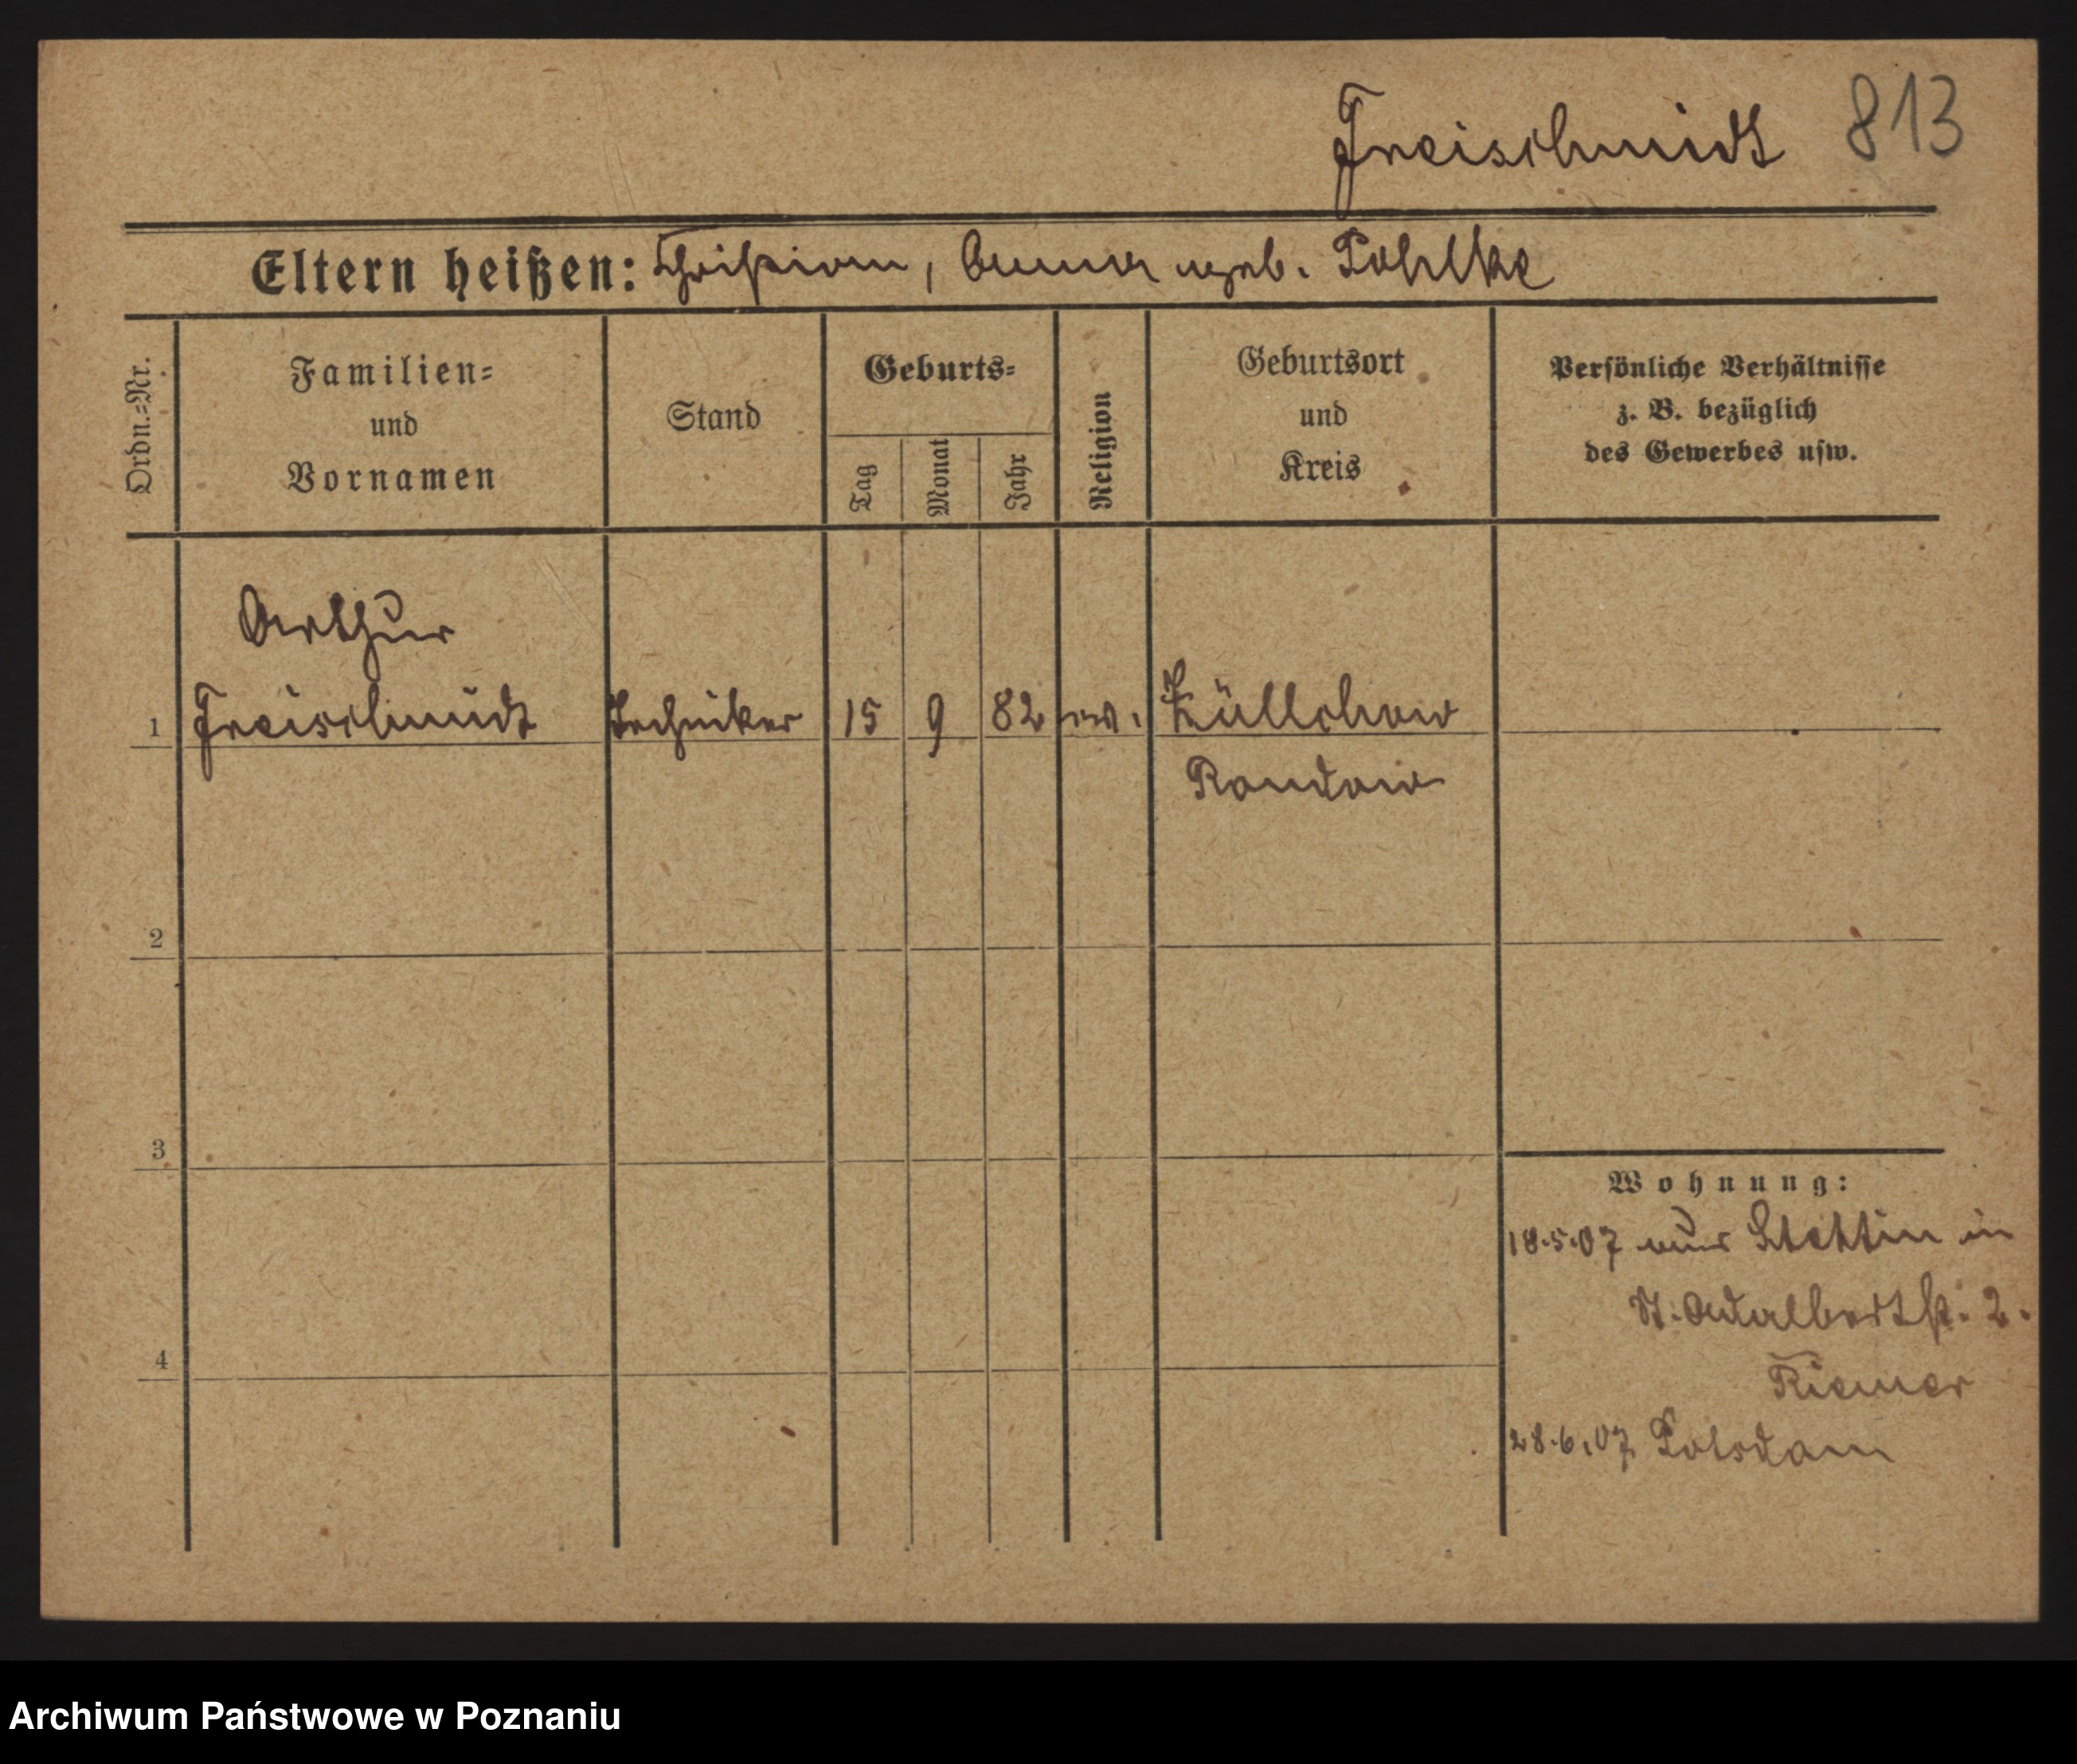 Freischmidt 813
Eltern heißen: Christian, Anna geb. Pohlke
Ordn.=Nr.
Familien=
und
Vornamen
Stand
Geburts=
Tag
Monat
Jahr
Religion
Geburtsort
und
Kreis
Persönliche Verhältnisse
z. B. bezüglich
des Gewerbes usw.
Arthur
1 Freischmidt Techniker 15 9 82 ev. Züllchow
Randow
2
3
4
Wohnung:
18.5.07 aus Stettin in
St. Adalbertst. 2.
Riemer
28.6.07 Potsdam
Archiwum Państwowe w Poznaniu